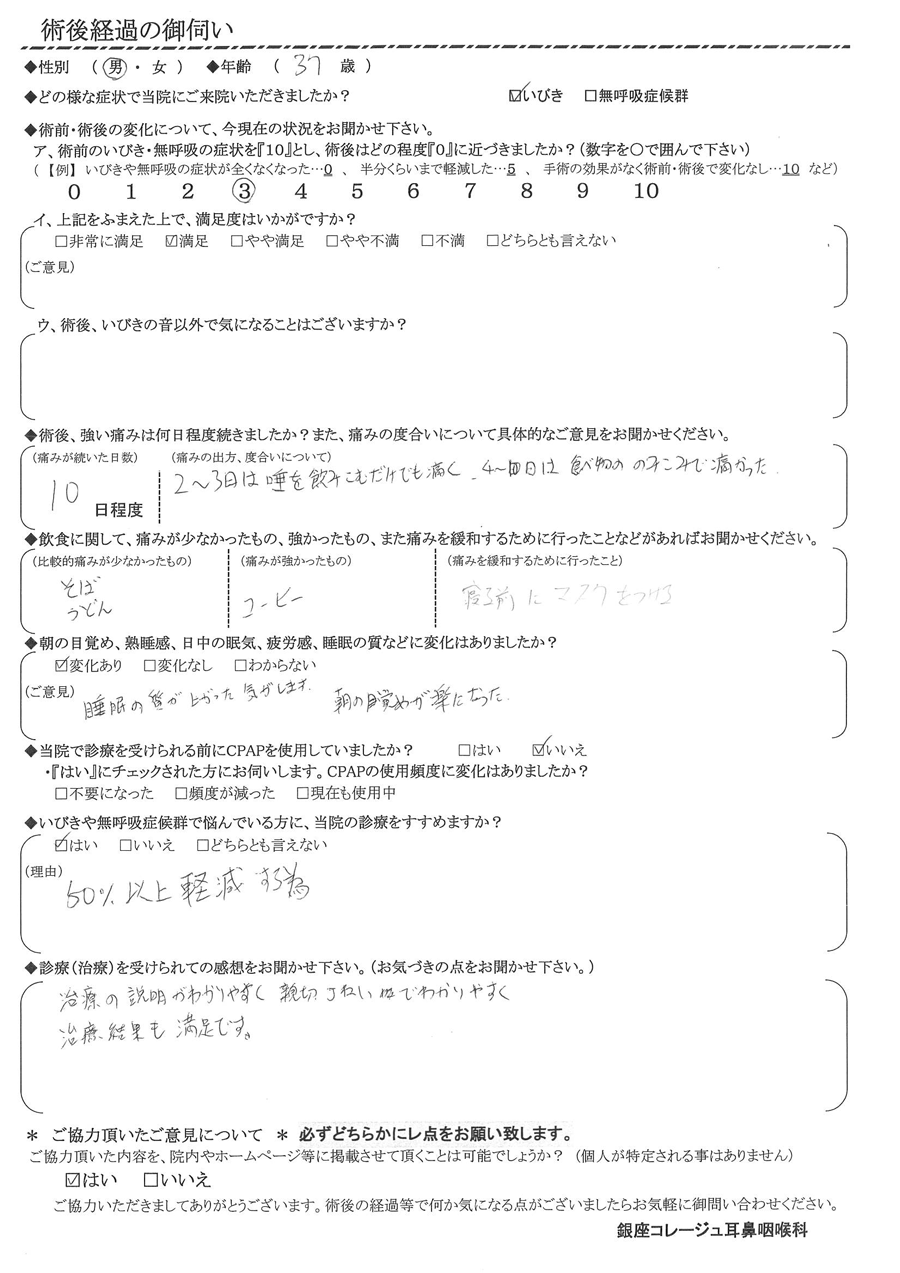 術後経過の御伺い
◆性別 （ 男 ・ 女 ） ◆年齢 （ 37 歳 ）
◆どの様な症状で当院にご来院いただきましたか？ ☑いびき □無呼吸症候群
◆術前・術後の変化について、今現在の状況をお聞かせ下さい。
ア、術前のいびき・無呼吸の症状を『10』とし、術後はどの程度『0』に近づきましたか？（数字を〇で囲んで下さい）
（【例】 いびきや無呼吸の症状が全くなくなった…0 、 半分くらいまで軽減した…5 、 手術の効果がなく術前・術後で変化なし…10 など）
0 1 2 ③ 4 5 6 7 8 9 10
イ、上記をふまえた上で、満足度はいかがですか？
□非常に満足 ☑満足 □やや満足 □やや不満 □不満 □どちらとも言えない
（ご意見）
ウ、術後、いびきの音以外で気になることはございますか？
◆術後、強い痛みは何日程度続きましたか？また、痛みの度合いについて具体的なご意見をお聞かせください。
（痛みが続いた日数） （痛みの出方、度合いについて）
10 日程度 2〜3日は唾を飲みこむだけでも痛く、4〜 日は 食べ物の のみこみで痛かった.
◆飲食に関して、痛みが少なかったもの、強かったもの、また痛みを緩和するために行ったことなどがあればお聞かせください。
（比較的痛みが少なかったもの） （痛みが強かったもの） （痛みを緩和するために行ったこと）
そば うどん コーヒー 寝る前に マスクをつける
◆朝の目覚め、熟睡感、日中の眠気、疲労感、睡眠の質などに変化はありましたか？
☑変化あり □変化なし □わからない
（ご意見） 睡眠の質が上がった気がします. 朝の目覚めが楽になった.
◆当院で診療を受けられる前にCPAPを使用していましたか？ □はい ☑いいえ
・『はい』にチェックされた方にお伺いします。CPAPの使用頻度に変化はありましたか？
□不要になった □頻度が減った □現在も使用中
◆いびきや無呼吸症候群で悩んでいる方に、当院の診療をすすめますか？
☑はい □いいえ □どちらとも言えない
（理由） 50％以上軽減する為
◆診療（治療）を受けられての感想をお聞かせ下さい。（お気づきの点をお聞かせ下さい。）
治療の説明がわかりやすく 親切 ていねいでわかりやすく
治療結果も満足です。
＊ ご協力頂いたご意見について ＊ 必ずどちらかにレ点をお願い致します。
ご協力頂いた内容を、院内やホームページ等に掲載させて頂くことは可能でしょうか？ （個人が特定される事はありません）
☑はい □いいえ
ご協力いただきましてありがとうございます。術後の経過等で何か気になる点がございましたらお気軽に御問い合わせください。
銀座コレージュ耳鼻咽喉科